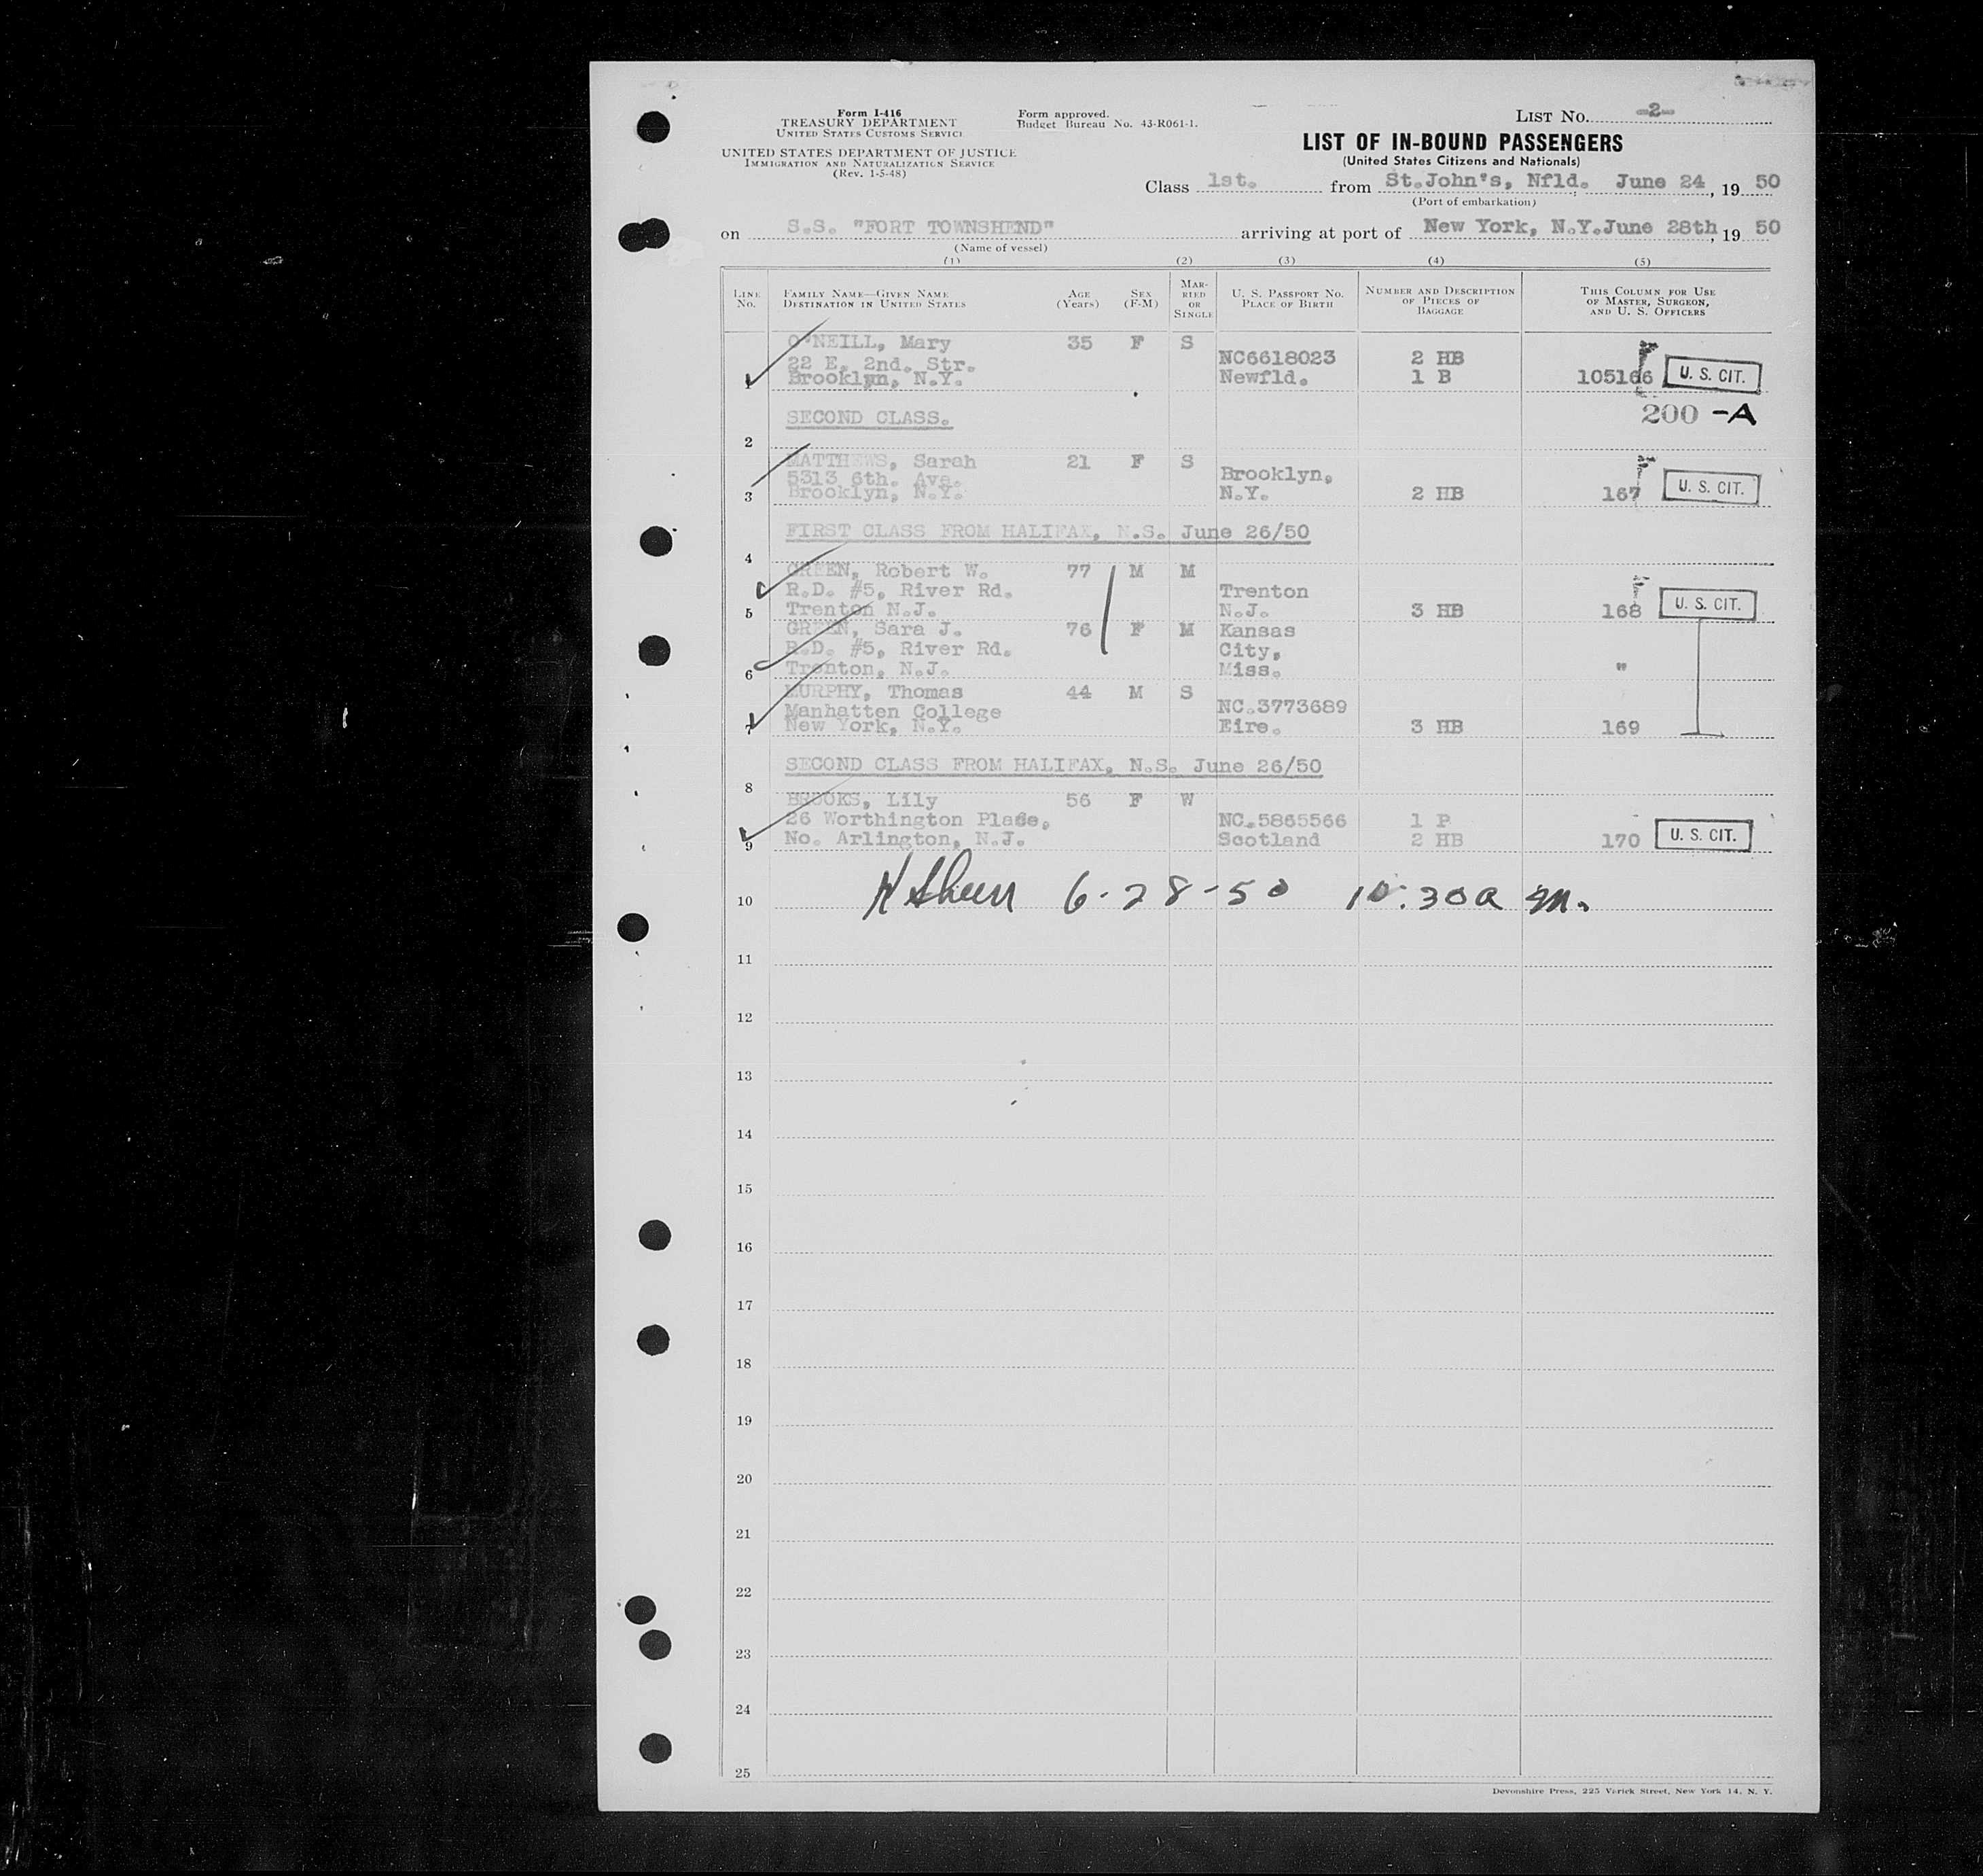 Form I-416
TREASURY DEPARTMENT
UNITED STATES CUSTOMS SERVICE
UNITED STATES DEPARTMENT OF JUSTICE
IMMIGRATION AND NATURALIZATION SERVICE
(Rev. 1-5-48)
Form approved.
Budget Bureau No. 43-R061-1.
LIST No. -2-
LIST OF IN-BOUND PASSENGERS
(United States Citizens and Nationals)
Class 1st. from St.John's, Nfld. June 24, 19 50
(Port of embarkation)
on S.S. "FORT TOWNSHEND" arriving at port of New York, N.Y. June 28th, 19 50
(Name of vessel)
(1) (2) (3) (4) (5)
LINE No.
FAMILY NAME—GIVEN NAME
DESTINATION IN UNITED STATES
AGE (Years)
SEX (F-M)
MARRIED OR SINGLE
U. S. PASSPORT NO.
PLACE OF BIRTH
NUMBER AND DESCRIPTION OF PIECES OF BAGGAGE
THIS COLUMN FOR USE OF MASTER, SURGEON, AND U. S. OFFICERS
O'NEILL, Mary 35 F S
22 E. 2nd. Str. NC6618023 2 HB
1 Brooklyn, N.Y. Newfld. 1 B 105166 U. S. CIT.
SECOND CLASS. 200 -A
2
MATTHEWS, Sarah 21 F S
5313 6th. Ave. Brooklyn,
3 Brooklyn, N.Y. N.Y. 2 HB 167 U. S. CIT.
FIRST CLASS FROM HALIFAX, N.S. June 26/50
4
GREEN, Robert W. 77 M M
R.D. #5, River Rd. Trenton
5 Trenton N.J. N.J. 3 HB 168 U. S. CIT.
GREEN, Sara J. 76 F M Kansas
R.D. #5, River Rd. City,
6 Trenton, N.J. Miss. "
MURPHY, Thomas 44 M S
Manhatten College NC.3773689
7 New York, N.Y. Eire. 3 HB 169
SECOND CLASS FROM HALIFAX, N.S. June 26/50
8
BROOKS, Lily 56 F W
26 Worthington Place, NC.5865566 1 P
9 No. Arlington, N.J. Scotland 2 HB 170 U. S. CIT.
10 6-28-50 10:30 a m.
11
12
13
14
15
16
17
18
19
20
21
22
23
24
25
Devonshire Press, 225 Varick Street, New York 14, N. Y.